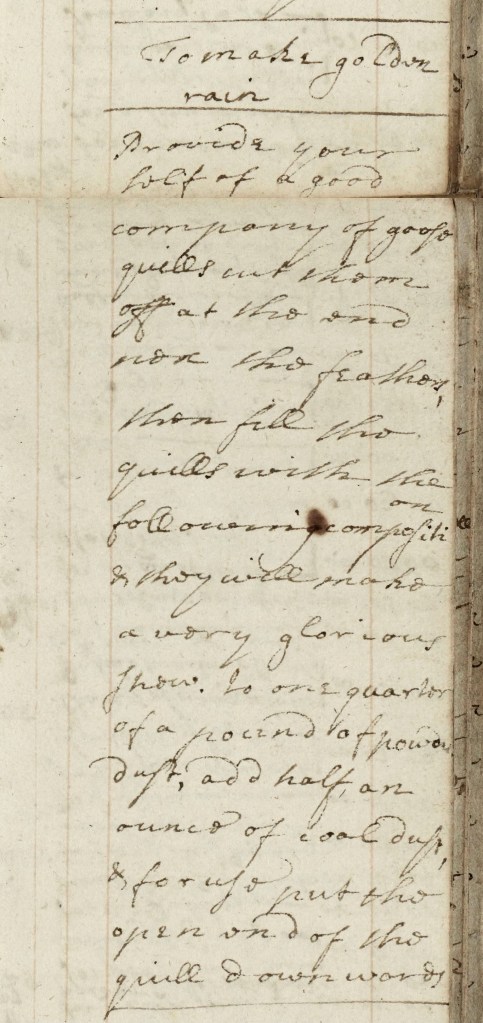 To make golden
rain
Provide your
self of a good
company of goose
quills cut them
off at the end
nex the feather,
then fill the
quills with the
following compositi
on
& they will make
a very glorious
shew. to one quarter
of a pound of powder
dust, add half, an
ounce of coal dust,
& for use put the
open end of the
quill downwards